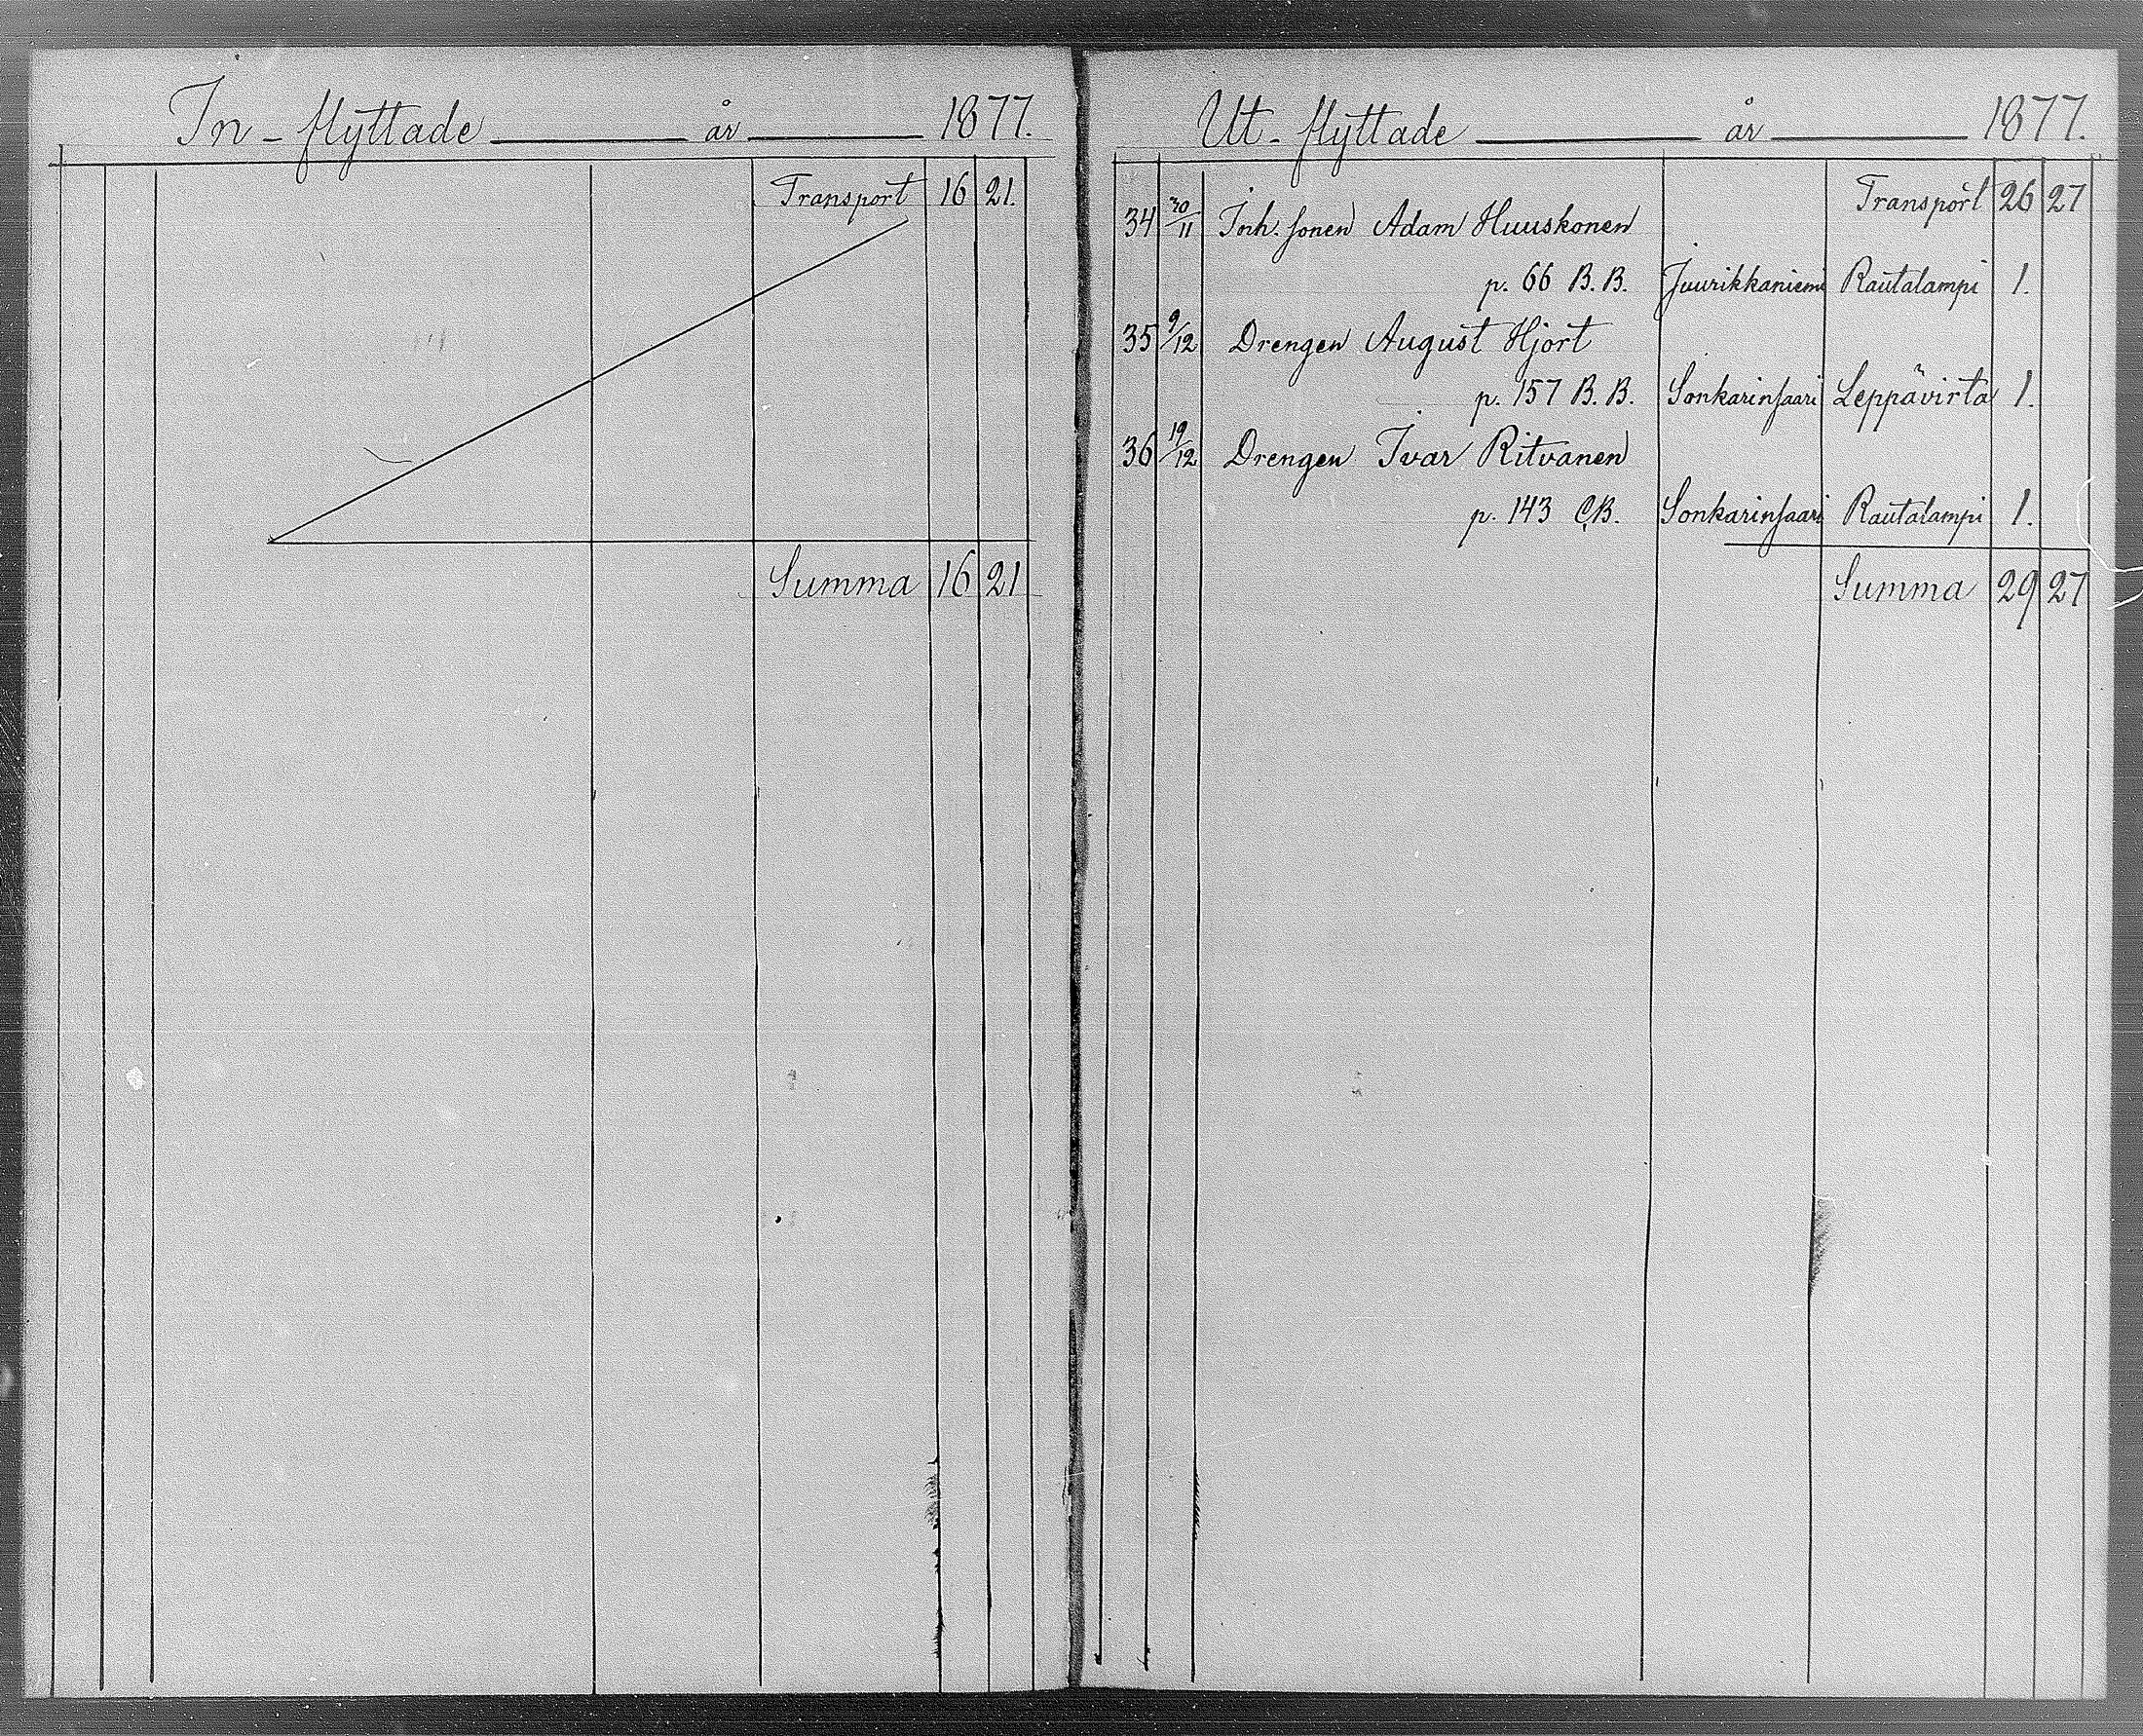 In-flyttade år 1877.
Transport 16 21.
Summa 16 21
Ut-flyttade år 1877.
Transport 26 27
34 30/11 Inh. sonen Adam Huuskonen
p. 66 B.B. Juurikkaniemi Rautalampi 1.
35 9/12 Drengen August Hjort
p. 157 B.B. Sonkarinsaari Leppävirta 1.
36 19/12 Drengen Ivar Ritvanen
p. 143 C.B. Sonkarinsaari Rautalampi 1.
Summa 29 27